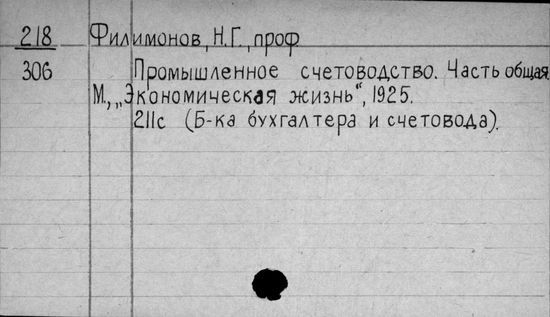 218 Филимонов, Н.Г., проф
306 Промышленное счетоводство. Часть общая
М., „Экономическая жизнь“, 1925.
211с (Б-ка бухгалтера и счетовода).